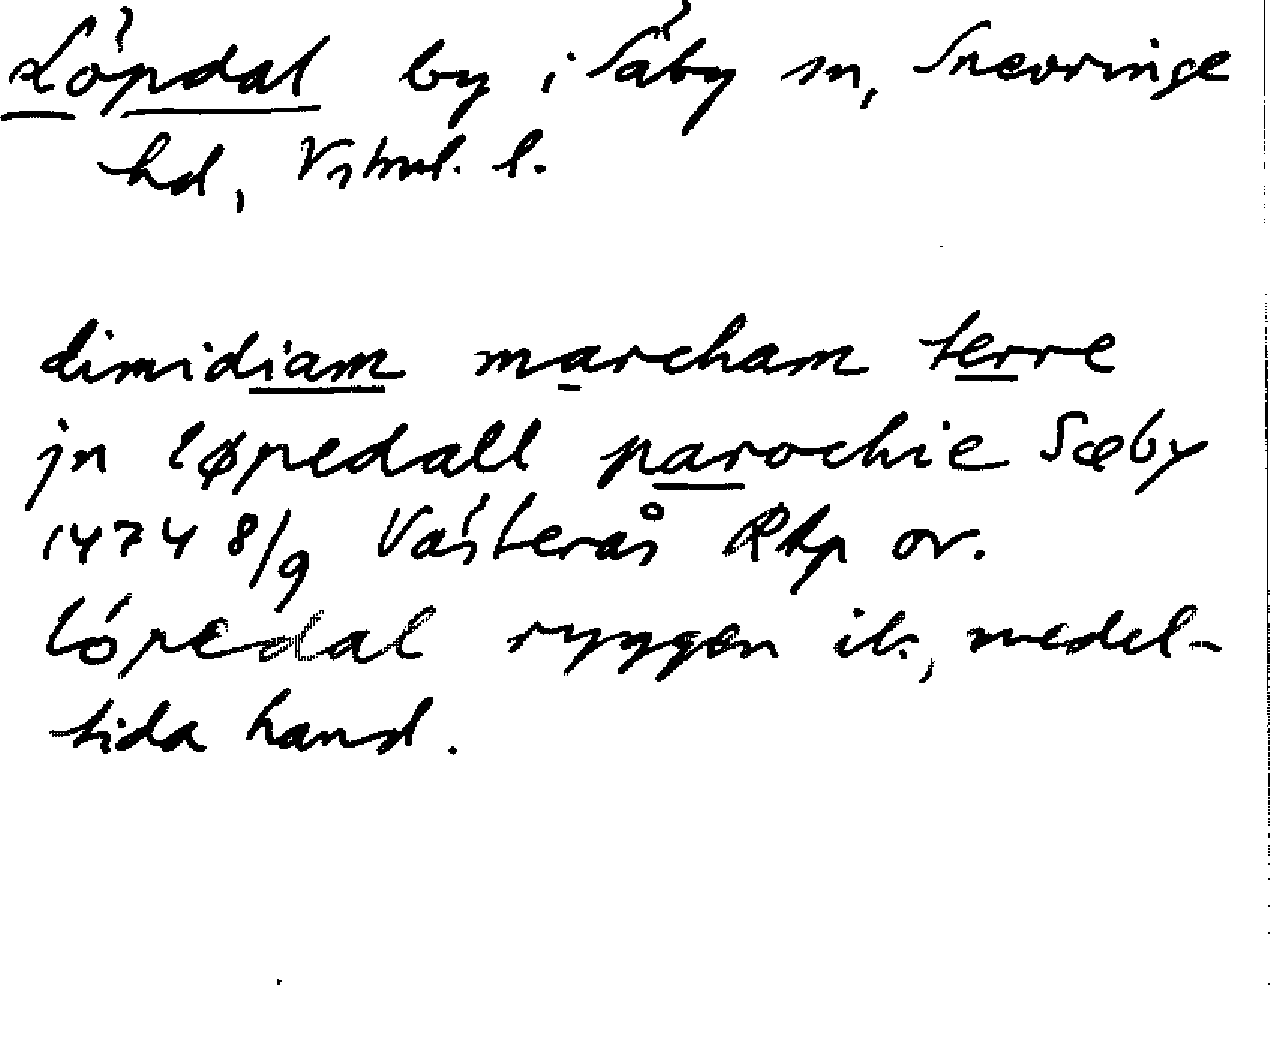 Löpdal by i Säby sn, Snevringe
hd, Vstml. l.
dimidiam marcham terre
jn løpedall parochie Sæby
1474 8/9 Västerås RAp or.
löpedal ryggen ib, medel-
tida hand.